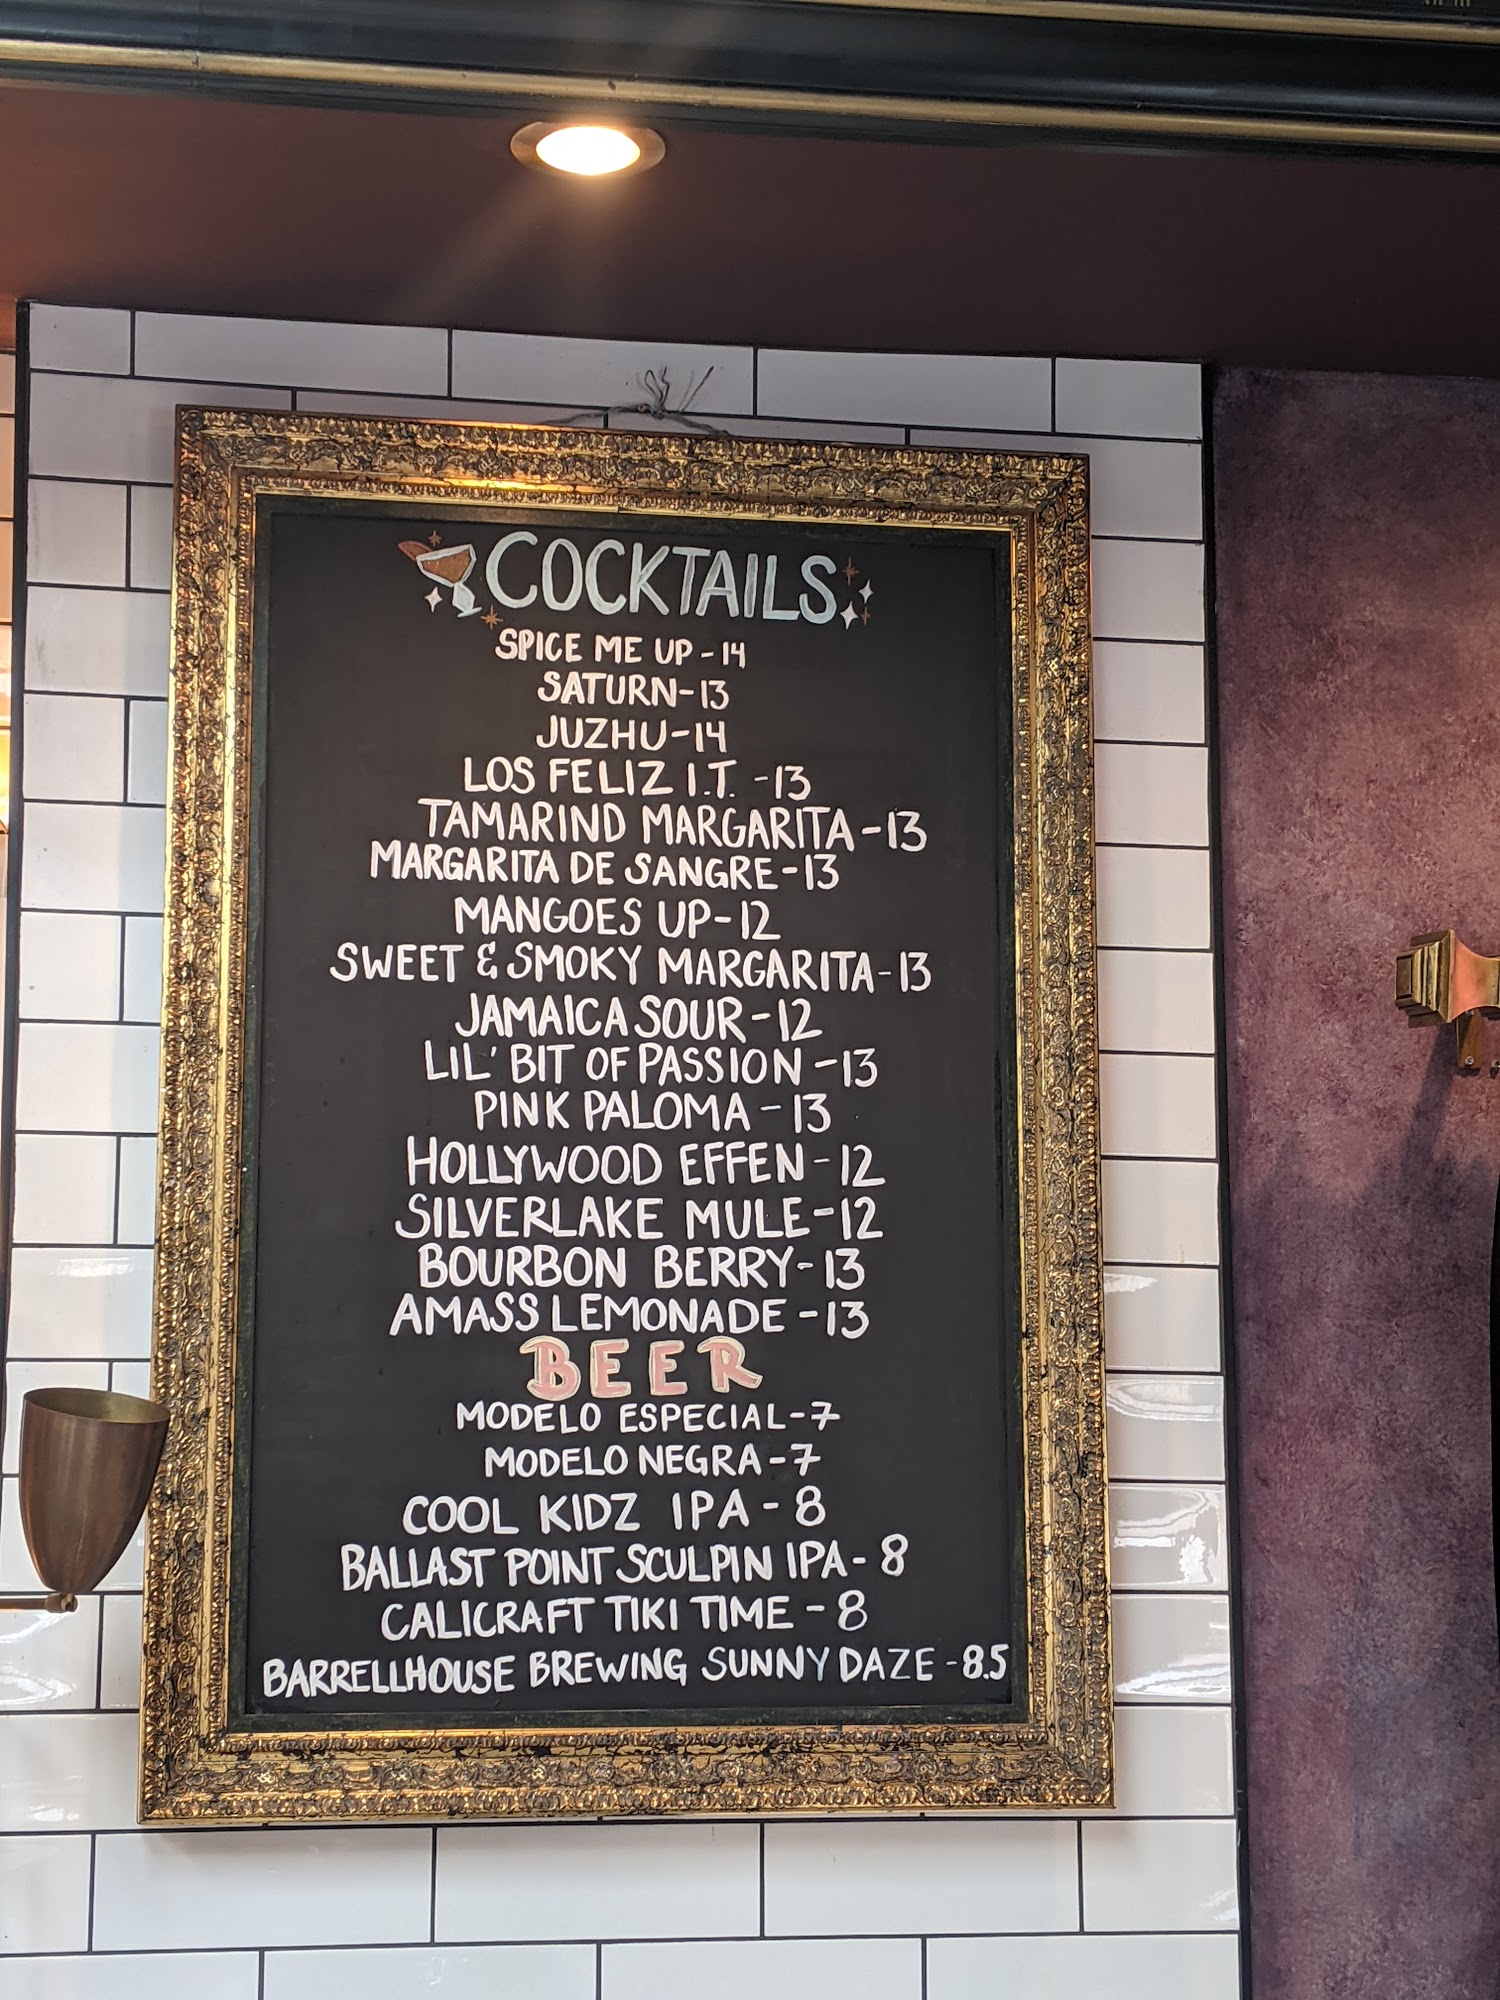 COCKTAILS
SPICE ME UP - 14
SATURN - 13
JUZHU - 14
LOS FELIZ I.T. - 13
TAMARIND MARGARITA - 13
MARGARITA DE SANGRE - 13
MANGOES UP - 12
SWEET & SMOKY MARGARITA - 13
JAMAICA SOUR - 12
LIL' BIT OF PASSION - 13
PINK PALOMA - 13
HOLLYWOOD EFFEN - 12
SILVERLAKE MULE - 12
BOURBON BERRY - 13
AMASS LEMONADE - 13
BEER
MODELO ESPECIAL - 7
MODELO NEGRA - 7
COOL KIDZ IPA - 8
BALLAST POINT SCULPIN IPA - 8
CALICRAFT TIKI TIME - 8
BARRELLHOUSE BREWING SUNNY DAZE - 8.5